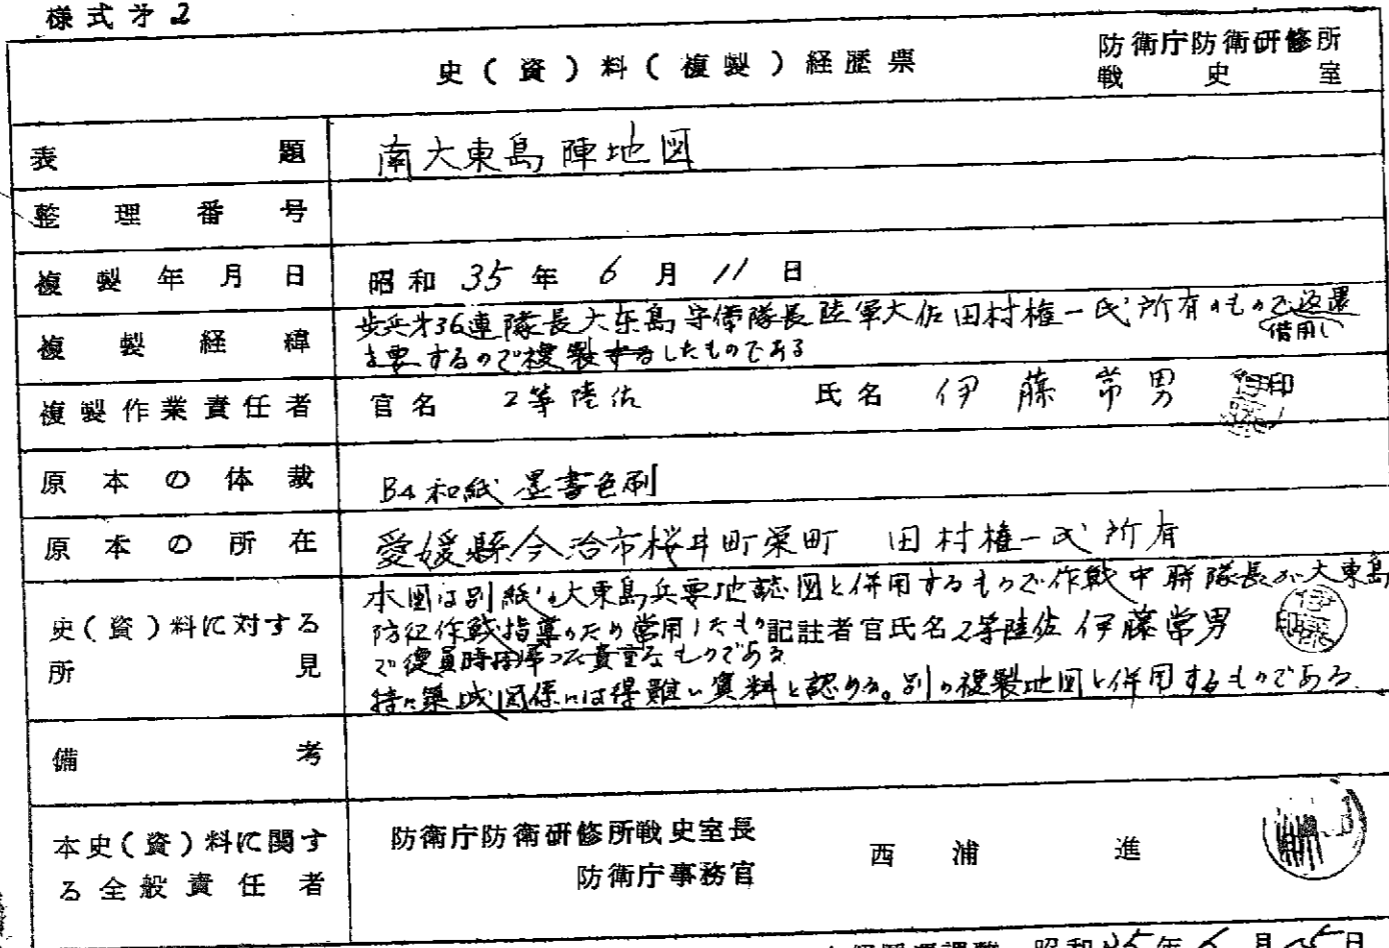 様式才2
史(資)料(複製)経歴票
防衛庁防衛研修所
戦史室
表題 南大東島陣地図
整理番号
複製年月日 昭和35年6月11日
複製経緯 歩兵才36連隊長大东島守備隊長陸軍大佐田村権一氏所有のもので返還
借用し
を要するので複製するしたものである
複製作業責任者 官名 2等陸佐 氏名 伊藤常男 印
原本の体裁 B4和紙 墨書色刷
原本の所在 愛媛縣今治市桜井町栄町 田村権一氏所有
史(資)料に対する
所見
本図は別紙の大東島兵要地誌図と併用するもので作戦中聯隊長が大東島
防衛作戦指導のため常用したもの記註者官氏名2等陸佐 伊藤常男 印
で復員時持帰った貴重なものである
特に築城関係には得難い資料と認める。別の複製地図と併用するものである。
備考
本史(資)料に関す
る全般責任者
防衛庁防衛研修所戦史室長
防衛庁事務官
西浦進
昭和35年6月15日